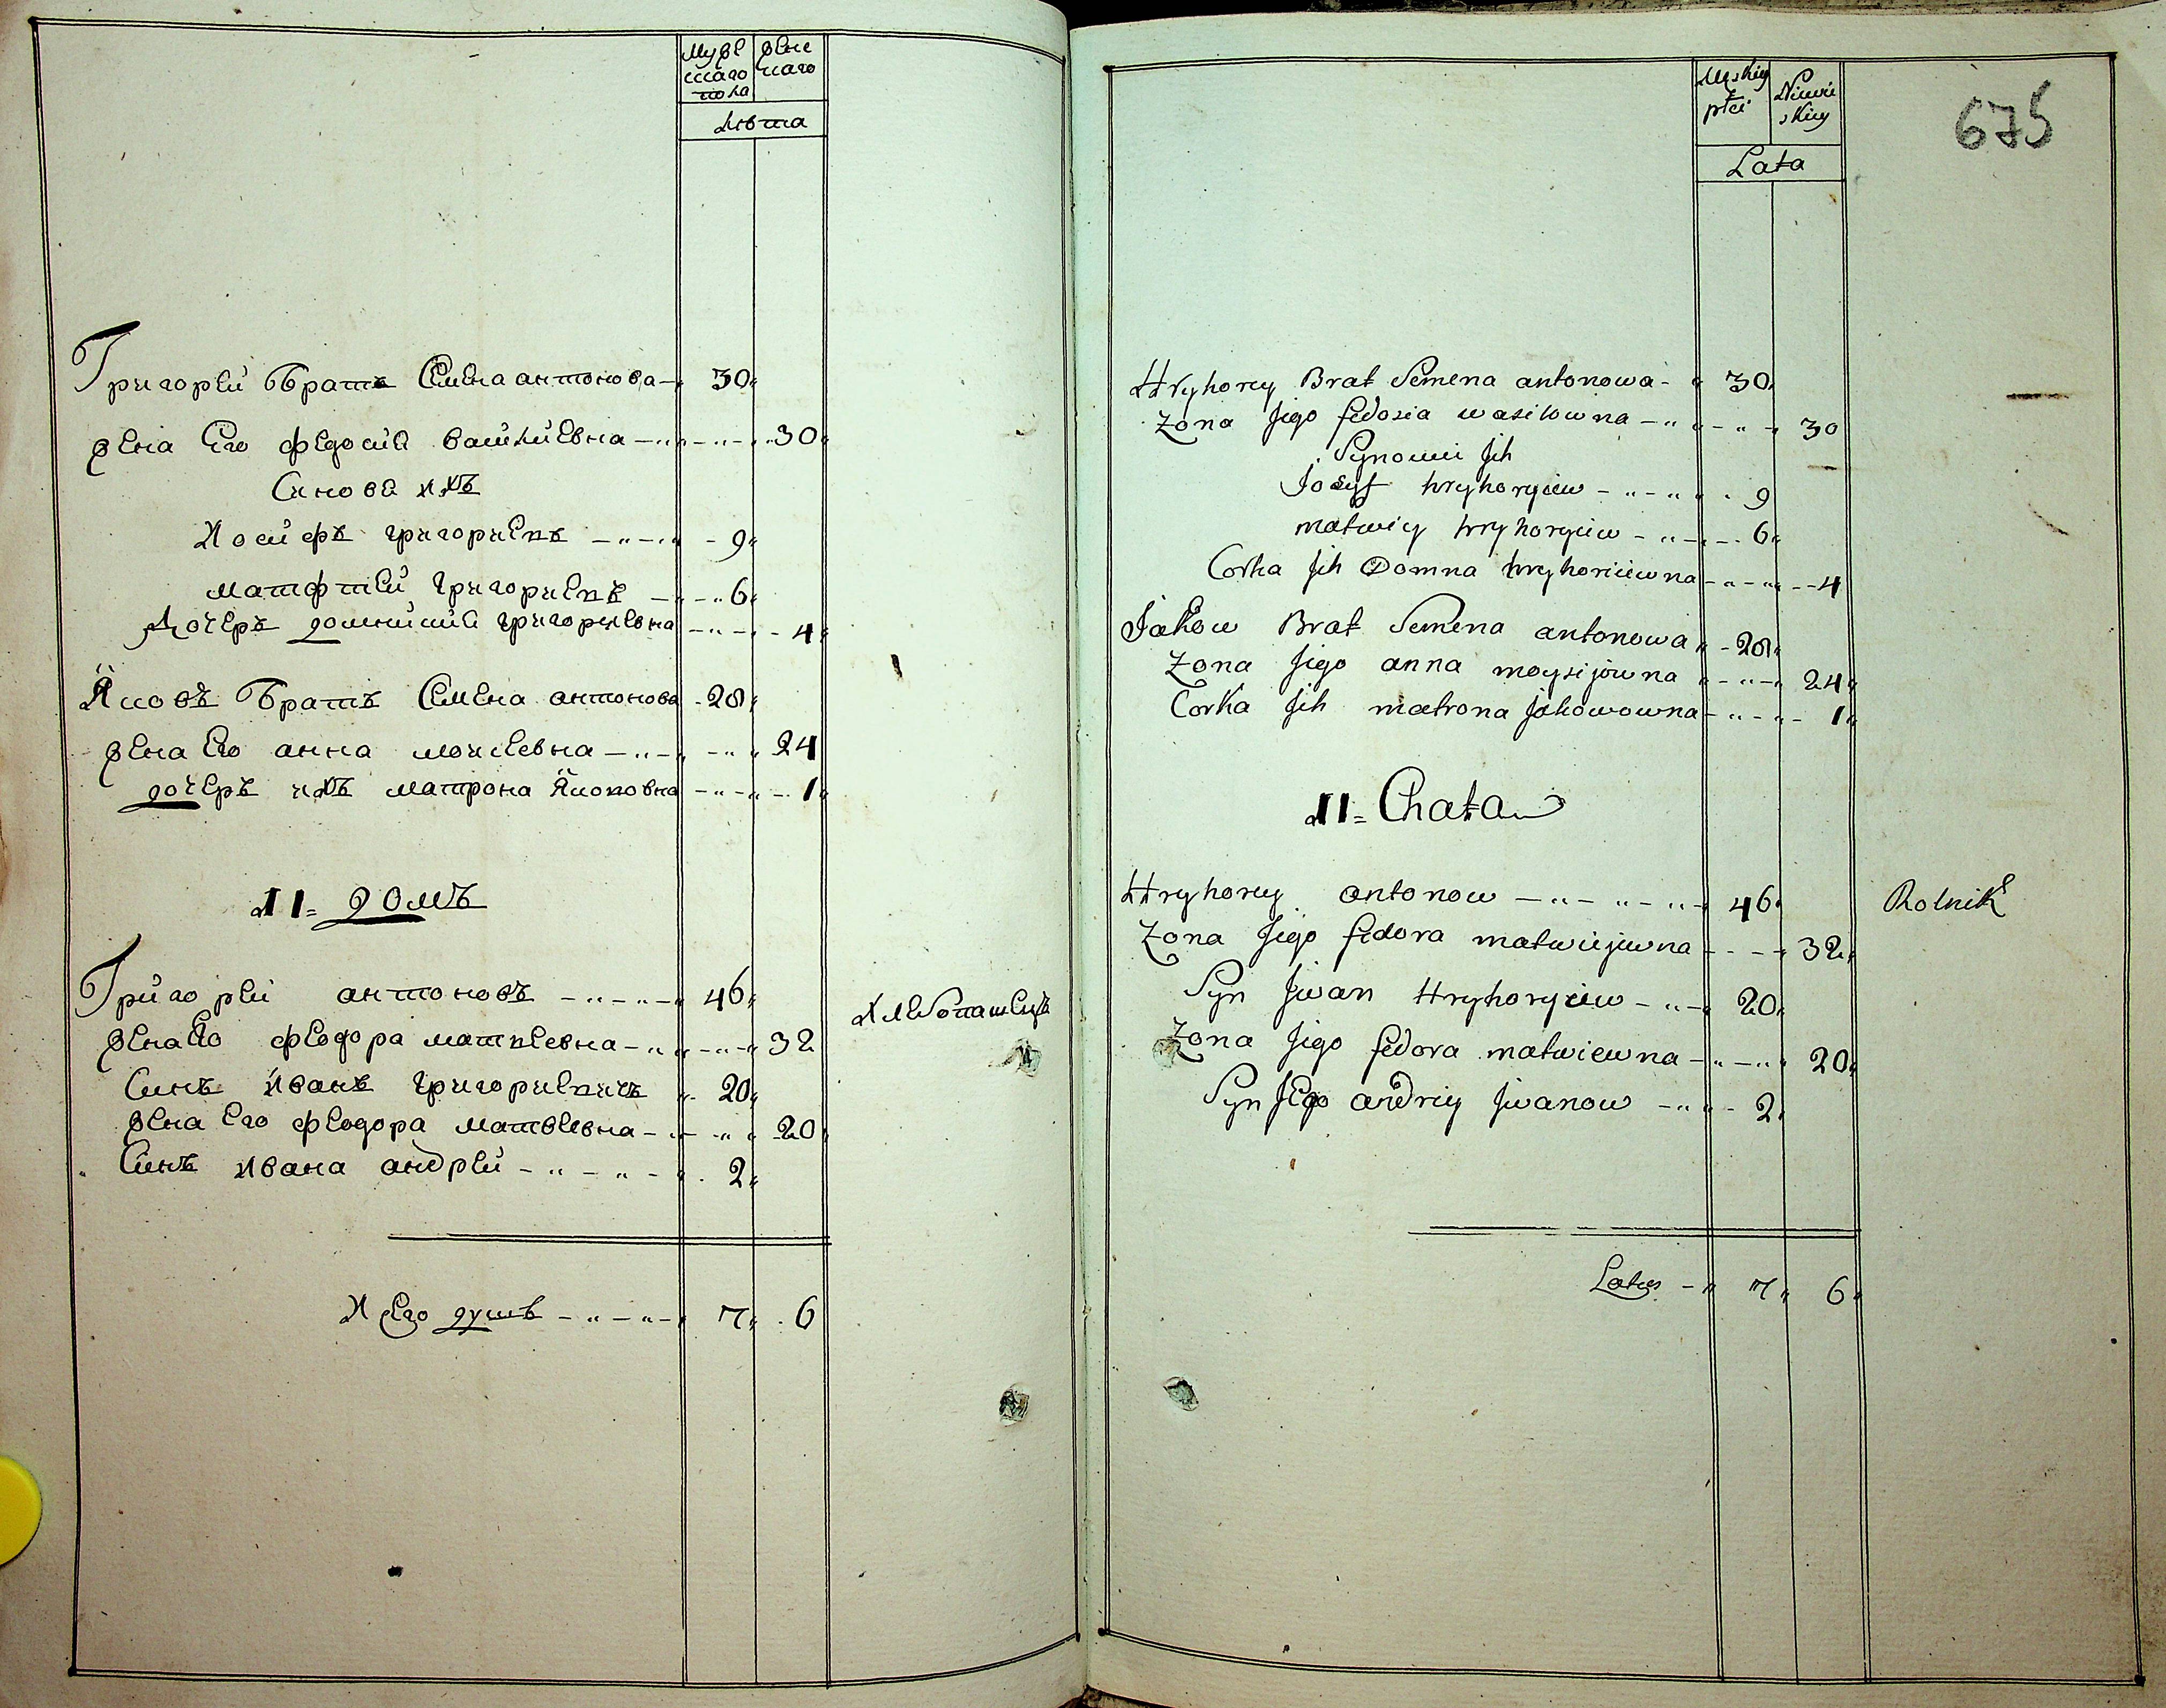 Мужескаго пола
женскаго
Лѣта
Григорей Братъ Семена антонова 30
жена Его федосия василиевна 30
Синовя ихъ
Иосифъ григориевъ 9
матфтей григориевъ 6
Дочеръ домникия григориевна 4
Яковъ Братъ Семена антонова 28
жена Его анна моисеевна 24
дочеръ ихъ матрона Якововна 1
11= домъ
Григорей антоновъ 46
жена Его феодора матвеевна 32
Синъ иванъ григориевичъ 20
жена Его феодора матвеевна 20
Синъ ивана андрей 2
Хлебопашецъ
Итого душъ 7 6
675
Męskiey płci
Niewieskiey
Lata
Hryhorey Brat Semena antonowa 30
Zona Jego fedosia wasilowna 30
Synowie Jih
Josyf hryhoryiew 9
matwiey hryhoryiew 6
Corka Jih Domna hryhoriiewna 4
Jakow Brat Semena antonowa 28
Zona Jego anna moysijowna 24
Corka Jih matrona Jakowowna 1
11= Chata
Hryhorey antonow 46
Rolnik
Zona Jego fedora matwiejewna 32
Syn Jwan Hryhoryiew 20
Zona Jego fedora matwiewna 20
Syn JEgo andriy Jwanow 2
Latus 7 6